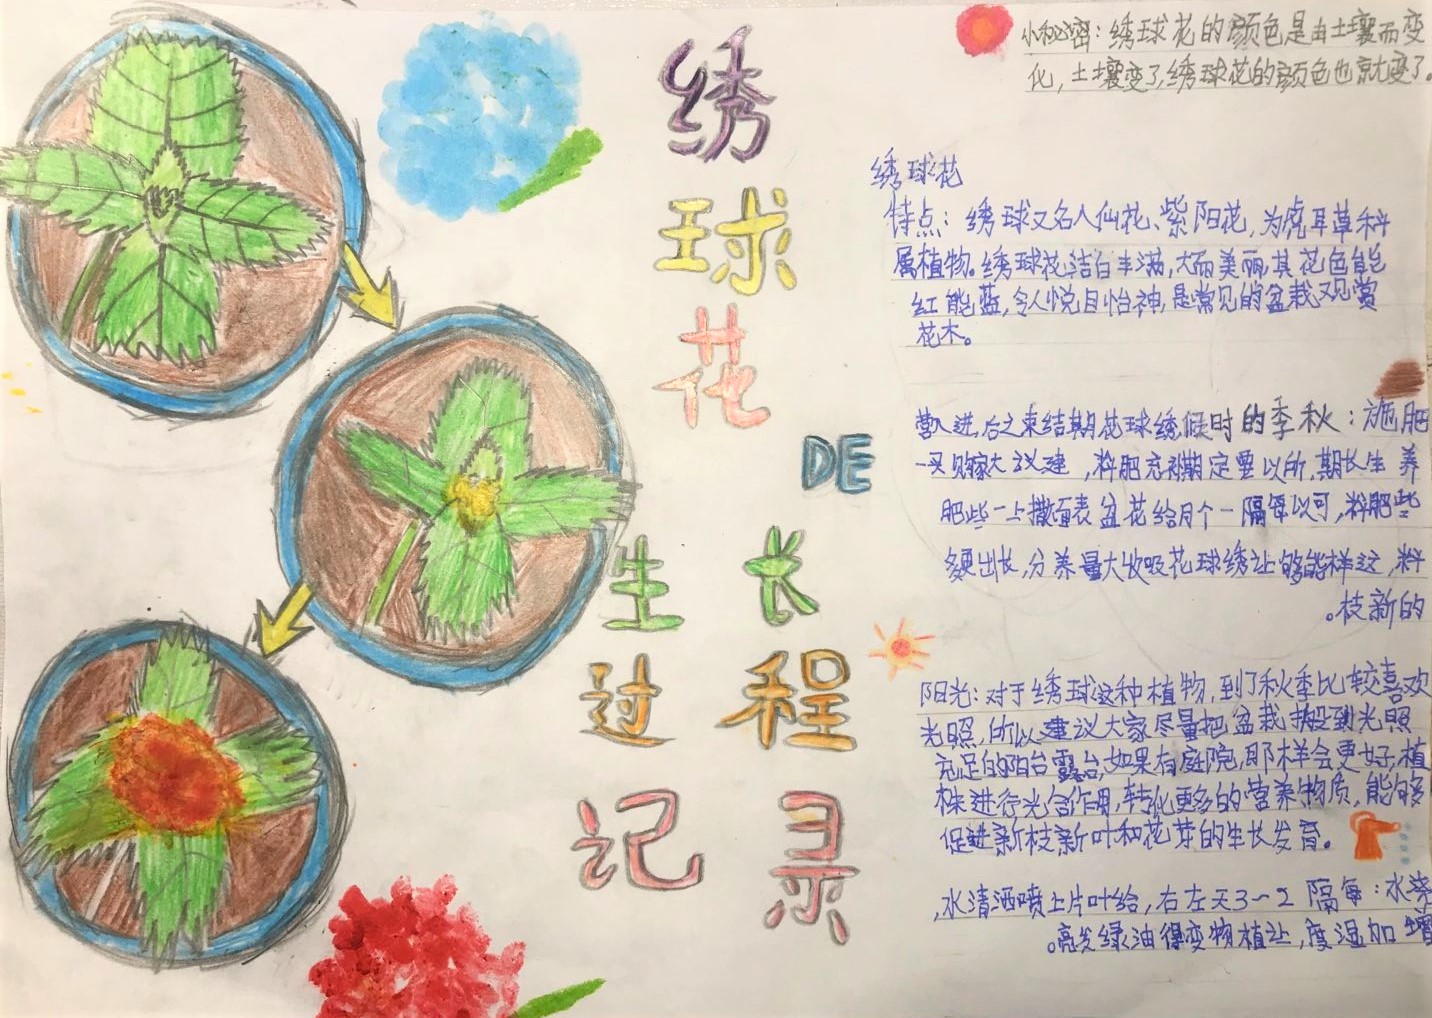 绣球花
DE
生长
过程
记录
小秘密：绣球花的颜色是由土壤而变
化，土壤变了，绣球花的颜色也就变了。
绣球花
特点：绣球又名八仙花、紫阳花，为虎耳草科
属植物。绣球花洁白丰满，大而美丽，其花色能
红能蓝，令人悦目怡神，是常见的盆栽观赏
花木。
施肥：秋季的时候绣球花期结束之后进入营
养生长期，所以要定期补充肥料，建议大家购买一
些肥料，可以每隔一个月给花盆表面撒上一些肥
料，这样能够让绣球花吸收大量养分，长出更多
的新枝。
阳光：对于绣球这种植物，到了秋季比较喜欢
光照，所以建议大家尽量把盆栽搬到光照
充足的阳台露台，如果有庭院，那样会更好，植
株进行光合作用，转化更多的营养物质，能够
促进新枝新叶和花芽的生长发育。
浇水：每隔2～3天左右，给叶片上喷洒清水，
增加温度，让植物变得油绿发亮。